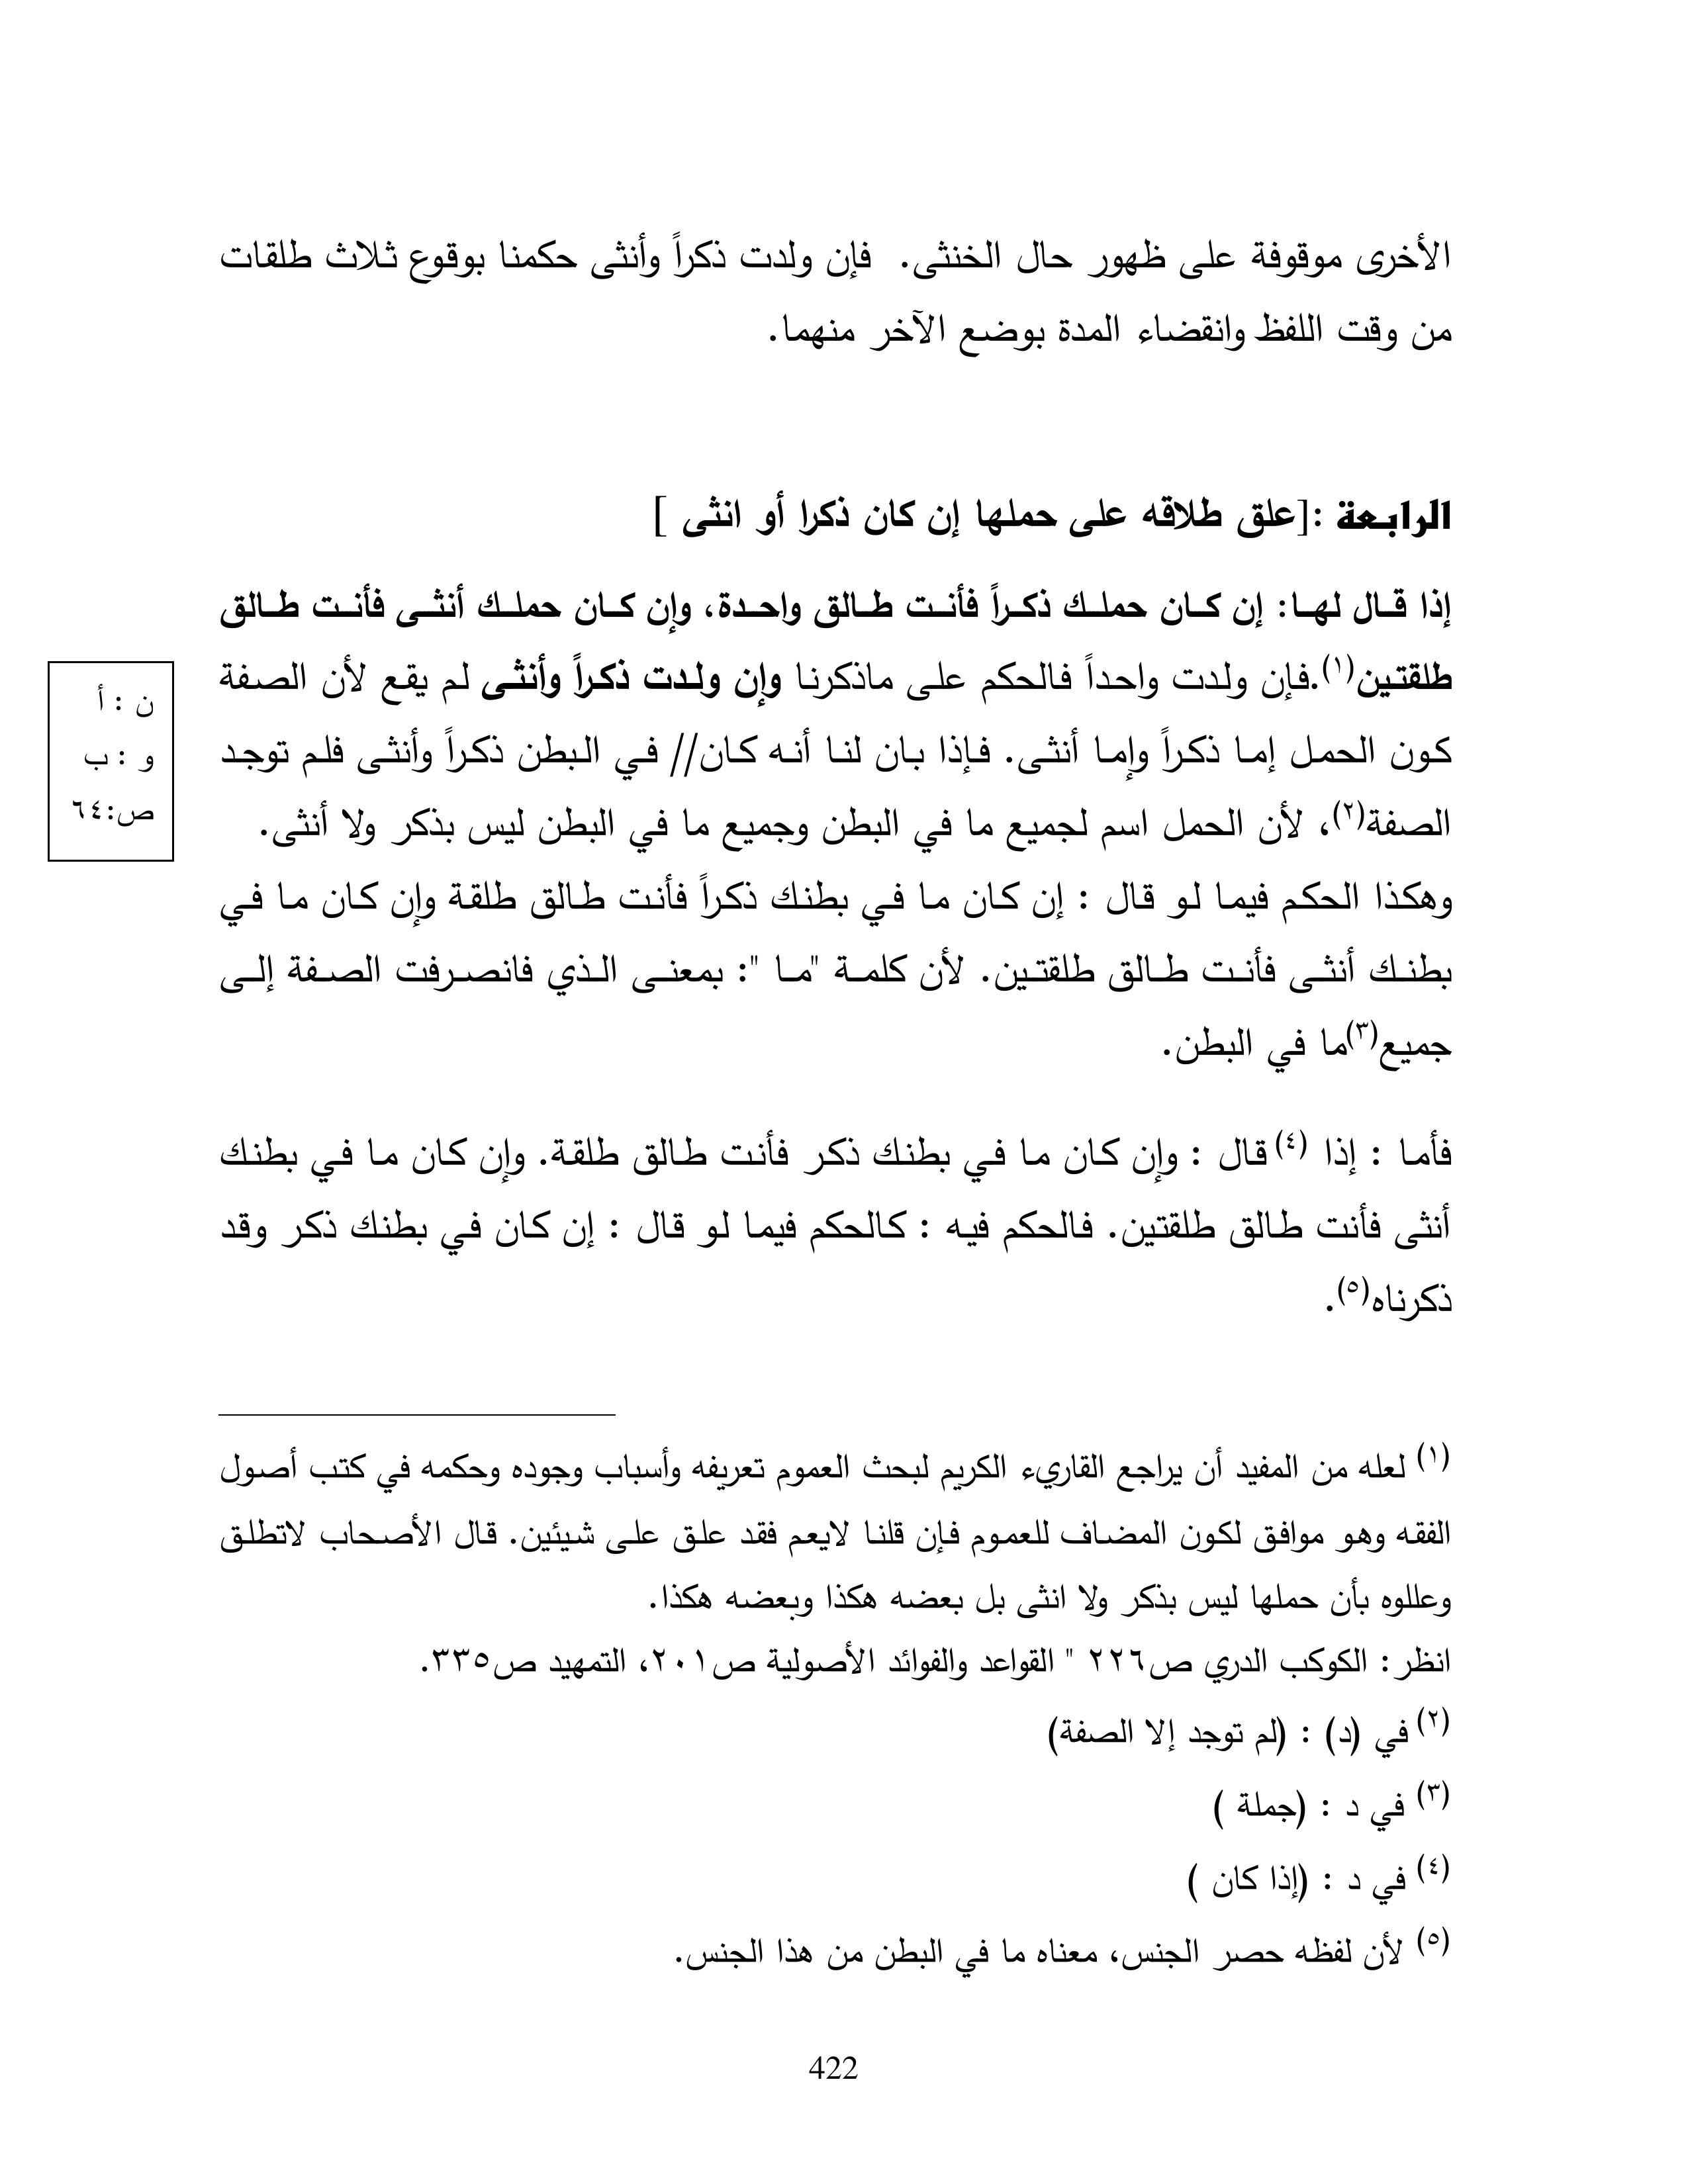 الأخرى موقوفة على ظهور حال الخنثى. فإن ولدت ذكراً وأنثى حكمنا بوقوع ثلاث طلقات
من وقت اللفظ وانقضاء المدة بوضع الآخر منهما.
الرابعة :[علق طلاقه على حملها إن كان ذكرا أو انثى ]
إذا قال لها: إن كان حملك ذكراً فأنت طالق واحدة، وإن كان حملك أنثى فأنت طالق
طلقتين(١).فإن ولدت واحداً فالحكم على ماذكرنا وإن ولدت ذكراً وأنثى لم يقع لأن الصفة
كون الحمل إما ذكراً وإما أنثى. فإذا بان لنا أنه كان// في البطن ذكراً وأنثى فلم توجد
الصفة(٢)، لأن الحمل اسم لجميع ما في البطن وجميع ما في البطن ليس بذكر ولا أنثى.
ن : أ
و : ب
ص:٦٤
وهكذا الحكم فيما لو قال : إن كان ما في بطنك ذكراً فأنت طالق طلقة وإن كان ما في
بطنك أنثى فأنت طالق طلقتين. لأن كلمة "ما ": بمعنى الذي فانصرفت الصفة إلى
جميع(٣)ما في البطن.
فأما : إذا (٤) قال : وإن كان ما في بطنك ذكر فأنت طالق طلقة. وإن كان ما في بطنك
أنثى فأنت طالق طلقتين. فالحكم فيه : كالحكم فيما لو قال : إن كان في بطنك ذكر وقد
ذكرناه(٥).
(١) لعله من المفيد أن يراجع القاريء الكريم لبحث العموم تعريفه وأسباب وجوده وحكمه في كتب أصول
الفقه وهو موافق لكون المضاف للعموم فإن قلنا لايعم فقد علق على شيئين. قال الأصحاب لاتطلق
وعللوه بأن حملها ليس بذكر ولا انثى بل بعضه هكذا وبعضه هكذا.
انظر: الكوكب الدري ص٢٢٦ " القواعد والفوائد الأصولية ص٢٠١، التمهيد ص٣٣٥.
(٢) في (د) : (لم توجد إلا الصفة)
(٣) في د : (جملة )
(٤) في د : (إذا كان )
(٥) لأن لفظه حصر الجنس، معناه ما في البطن من هذا الجنس.
422